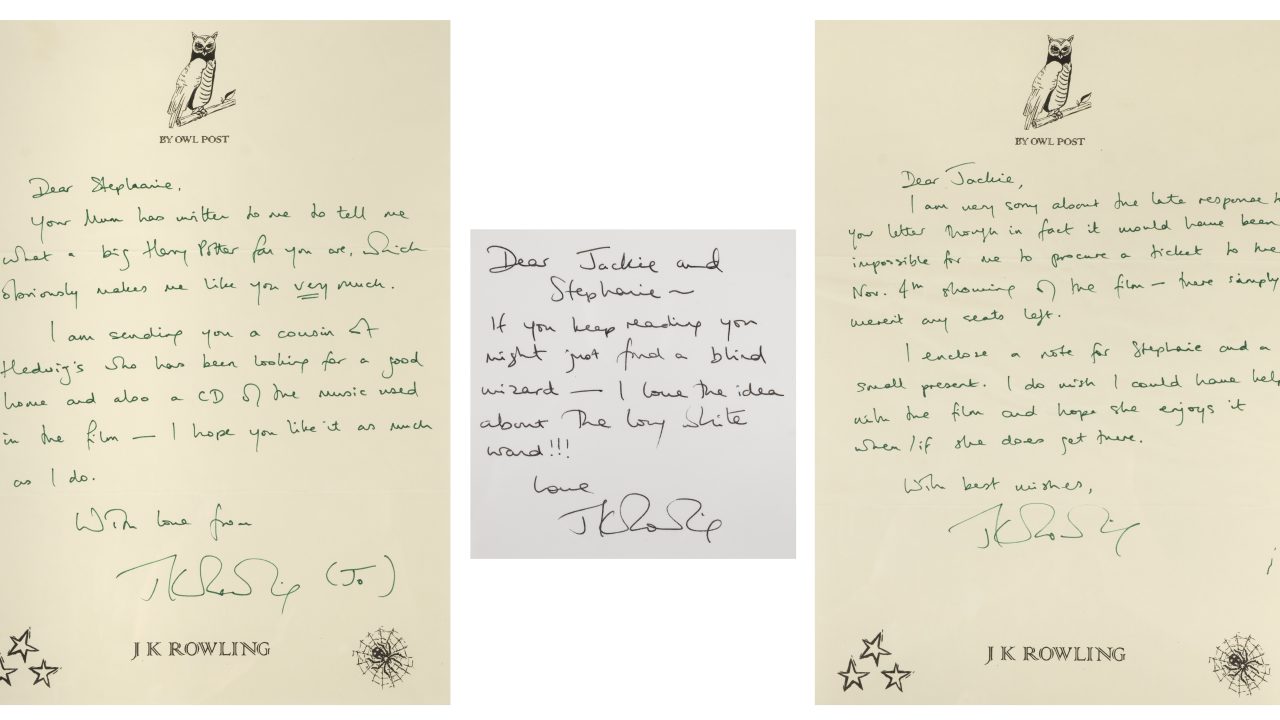 BY OWL POST
Dear Stephanie,
Your Mum has written to me to tell me
what a big Harry Potter fan you are, which
obviously makes me like you very much.
I am sending you a cousin of
Hedwig's who has been looking for a good
home and also a CD of the music used
in the film — I hope you like it as much
as I do.
With love from
JK Rowling (Jo)
J K ROWLING
Dear Jackie and
Stephanie ~
If you keep reading you
might just find a blind
wizard — I love the idea
about the long white
wand!!!
love
JK Rowling
BY OWL POST
Dear Jackie,
I am very sorry about the late response t
your letter though in fact it would have been
impossible for me to procure a ticket to the
Nov. 4th showing of the film — there simply
weren't any seats left.
I enclose a note for Stephanie and a
small present. I do wish I could have help
with the film and hope she enjoys it
when/if she does get there.
With best wishes,
JK Rowling
J K ROWLING